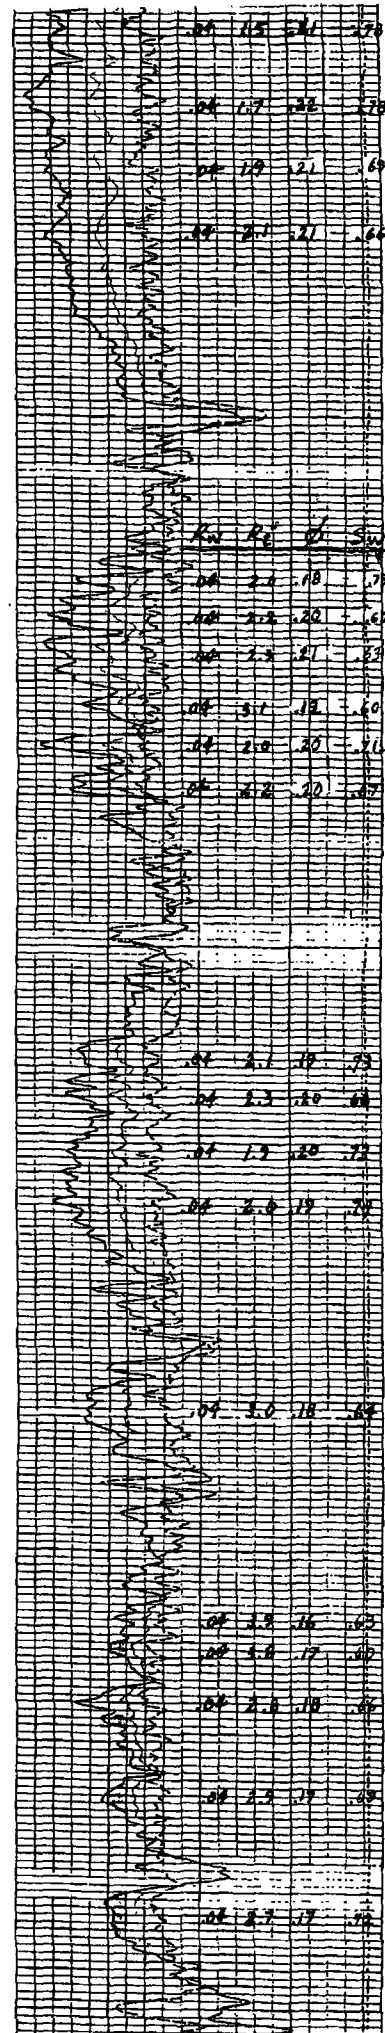 .04 1.5 .21 .78
.04 1.7 .22 .70
.04 1.9 .21 .69
.04 2.1 .21 .66
Rw Rt Ø Sw
.04 2.0 .18
.04 2.2 .20
.04 2.3 .21 .63
.04 3.1 .60
.04 2.0 .20 .71
.04 2.2 .20 .67
.04 2.1 .19 .73
.04 2.3 .20
.04 1.9 .20 .73
.04 2.0 .19
.04 3.0 .18 .64
.04 3.9 .16 .63
.04 .17 .60
.04 2.8 .18 .66
.04 2.9 .17 .69
.04 2.7 .17 .72